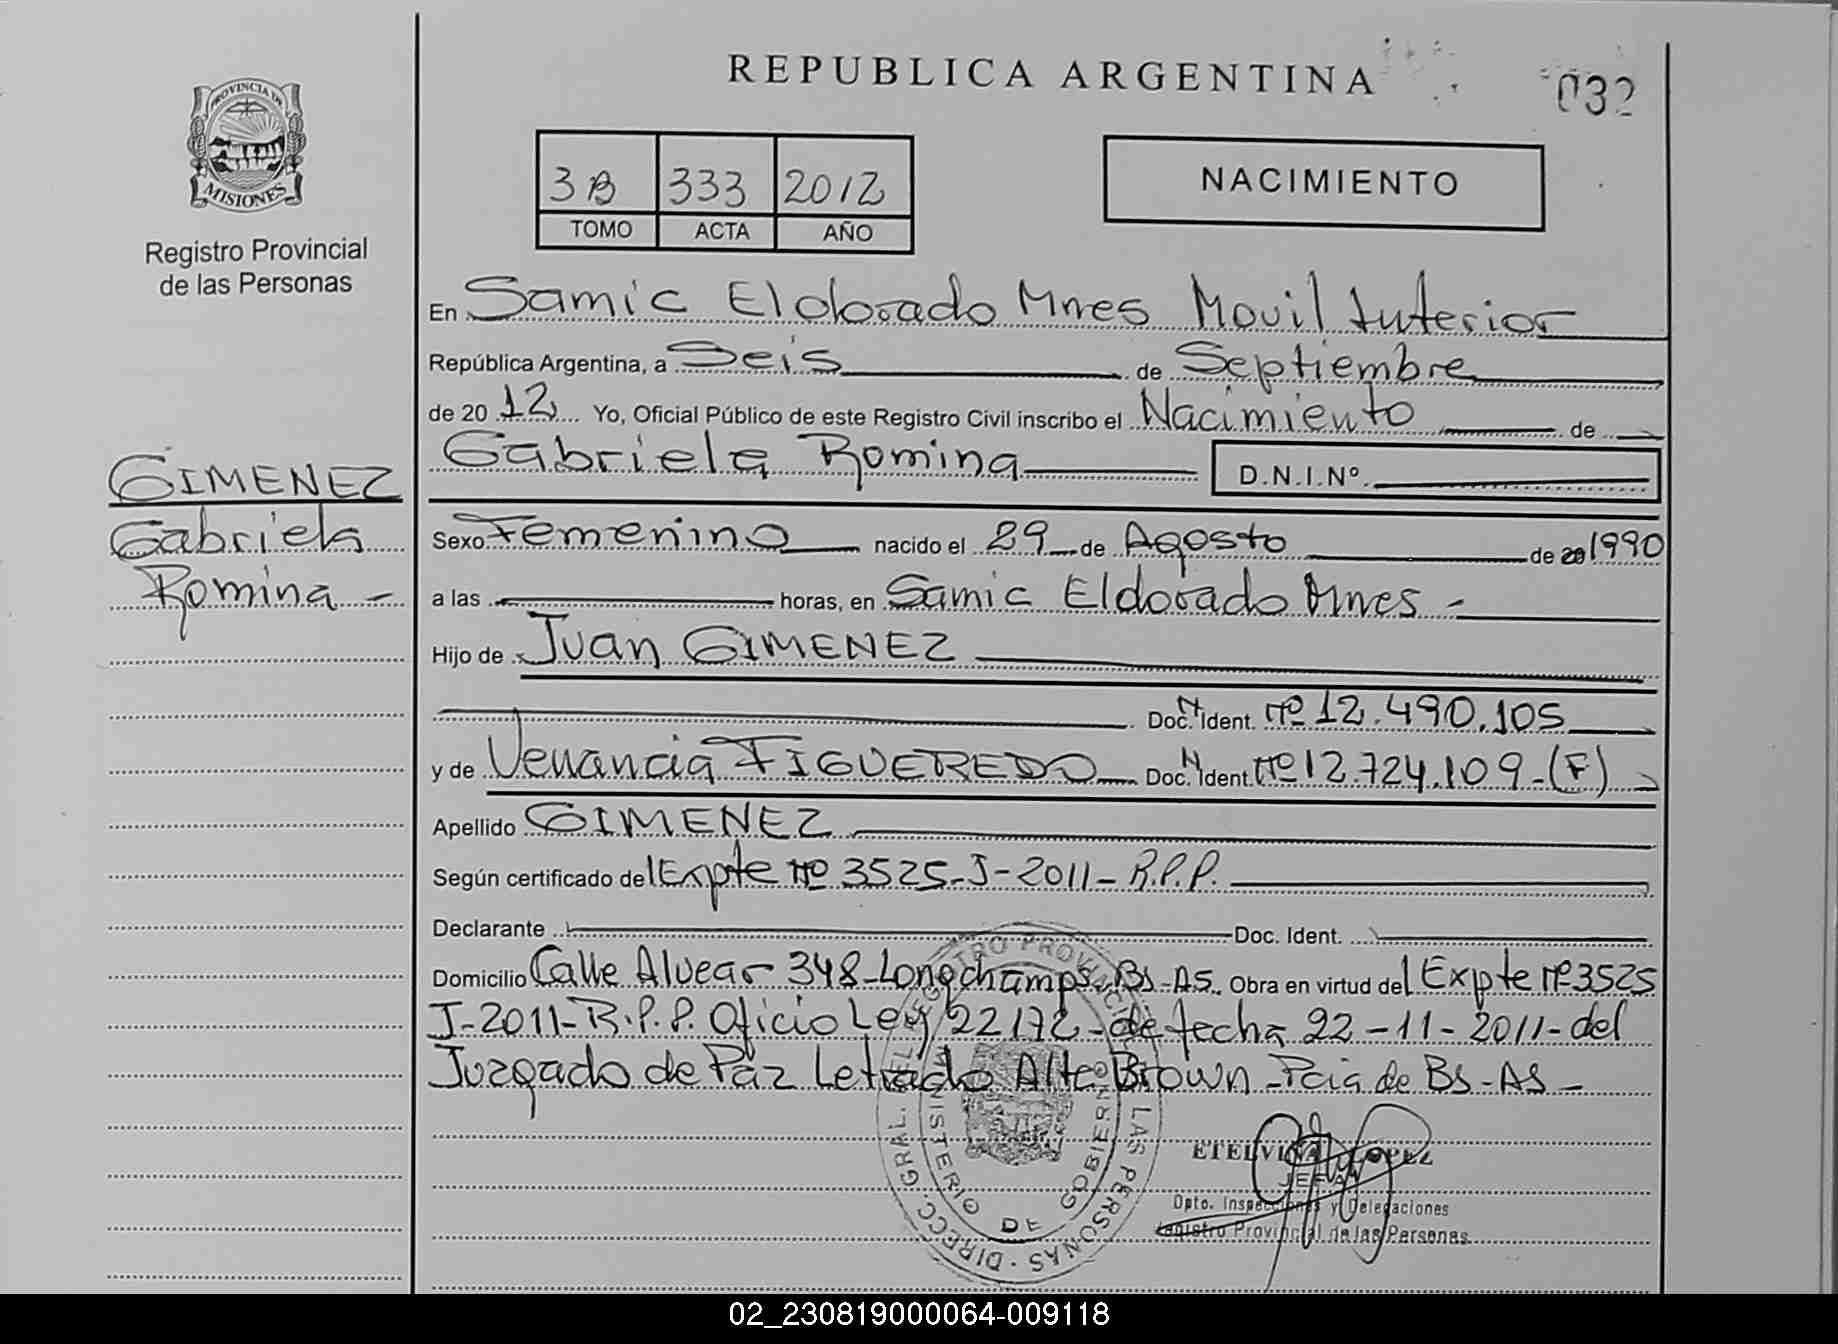 REPUBLICA ARGENTINA
032
PROVINCIA DE
MISIONES
Registro Provincial
de las Personas
3B 333 2012
TOMO ACTA AÑO
NACIMIENTO
En Samic Eldorado Mnes Movil Interior
República Argentina, a Seis de Septiembre
de 2012 Yo, Oficial Público de este Registro Civil inscribo el Nacimiento de
Gabriela Romina D.N.I.Nº.
GIMENEZ
Gabriela
Romina -
Sexo Femenino nacido el 29 de Agosto de 20 1990
a las horas, en Samic Eldorado Mnes -
Hijo de Juan GIMENEZ
Doc. N Ident. Nº 12.490.105
y de Venancia FIGUEREDO Doc. N Ident. Nº 12.724.109-(F)
Apellido GIMENEZ
Según certificado del Expte Nº 3525-J-2011- R.P.P.
Declarante Doc. Ident.
Domicilio Calle Alvear 348-Longchamps Bs-As. Obra en virtud del Expte Nº 3525
J-2011-R.P.P. Oficio Ley 22172-de fecha 22-11-2011-del
Juzgado de Paz Letrado Alte Brown-Pcia de Bs-As-
DIRECC. GRAL. DEL REGISTRO PROVINCIAL DE LAS PERSONAS
MINISTERIO DE GOBIERNO
ETELVINA LOPEZ
JEFA
Dpto. Inspecciones y Delegaciones
Registro Provincial de las Personas
02_230819000064-009118